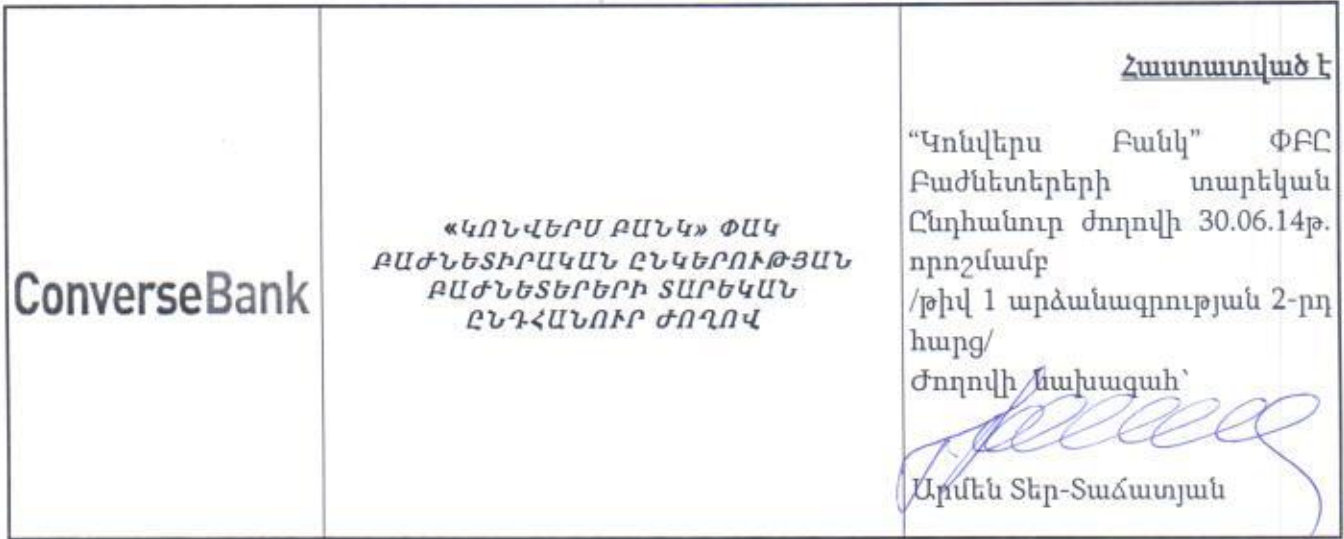 ConverseBank
«ԿՈՆՎԵՐՍ ԲԱՆԿ» ՓԱԿ
ԲԱԺՆԵՏԻՐԱԿԱՆ ԸՆԿԵՐՈՒԹՅԱՆ
ԲԱԺՆԵՏԵՐԵՐԻ ՏԱՐԵԿԱՆ
ԸՆԴՀԱՆՈՒՐ ԺՈՂՈՎ
Հաստատված է
“Կոնվերս Բանկ” ՓԲԸ
Բաժնետերերի տարեկան
Ընդհանուր ժողովի 30.06.14թ.
որոշմամբ
/թիվ 1 արձանագրության 2-րդ
հարց/
Ժողովի նախագահ՝
Արմեն Տեր-Տաճատյան